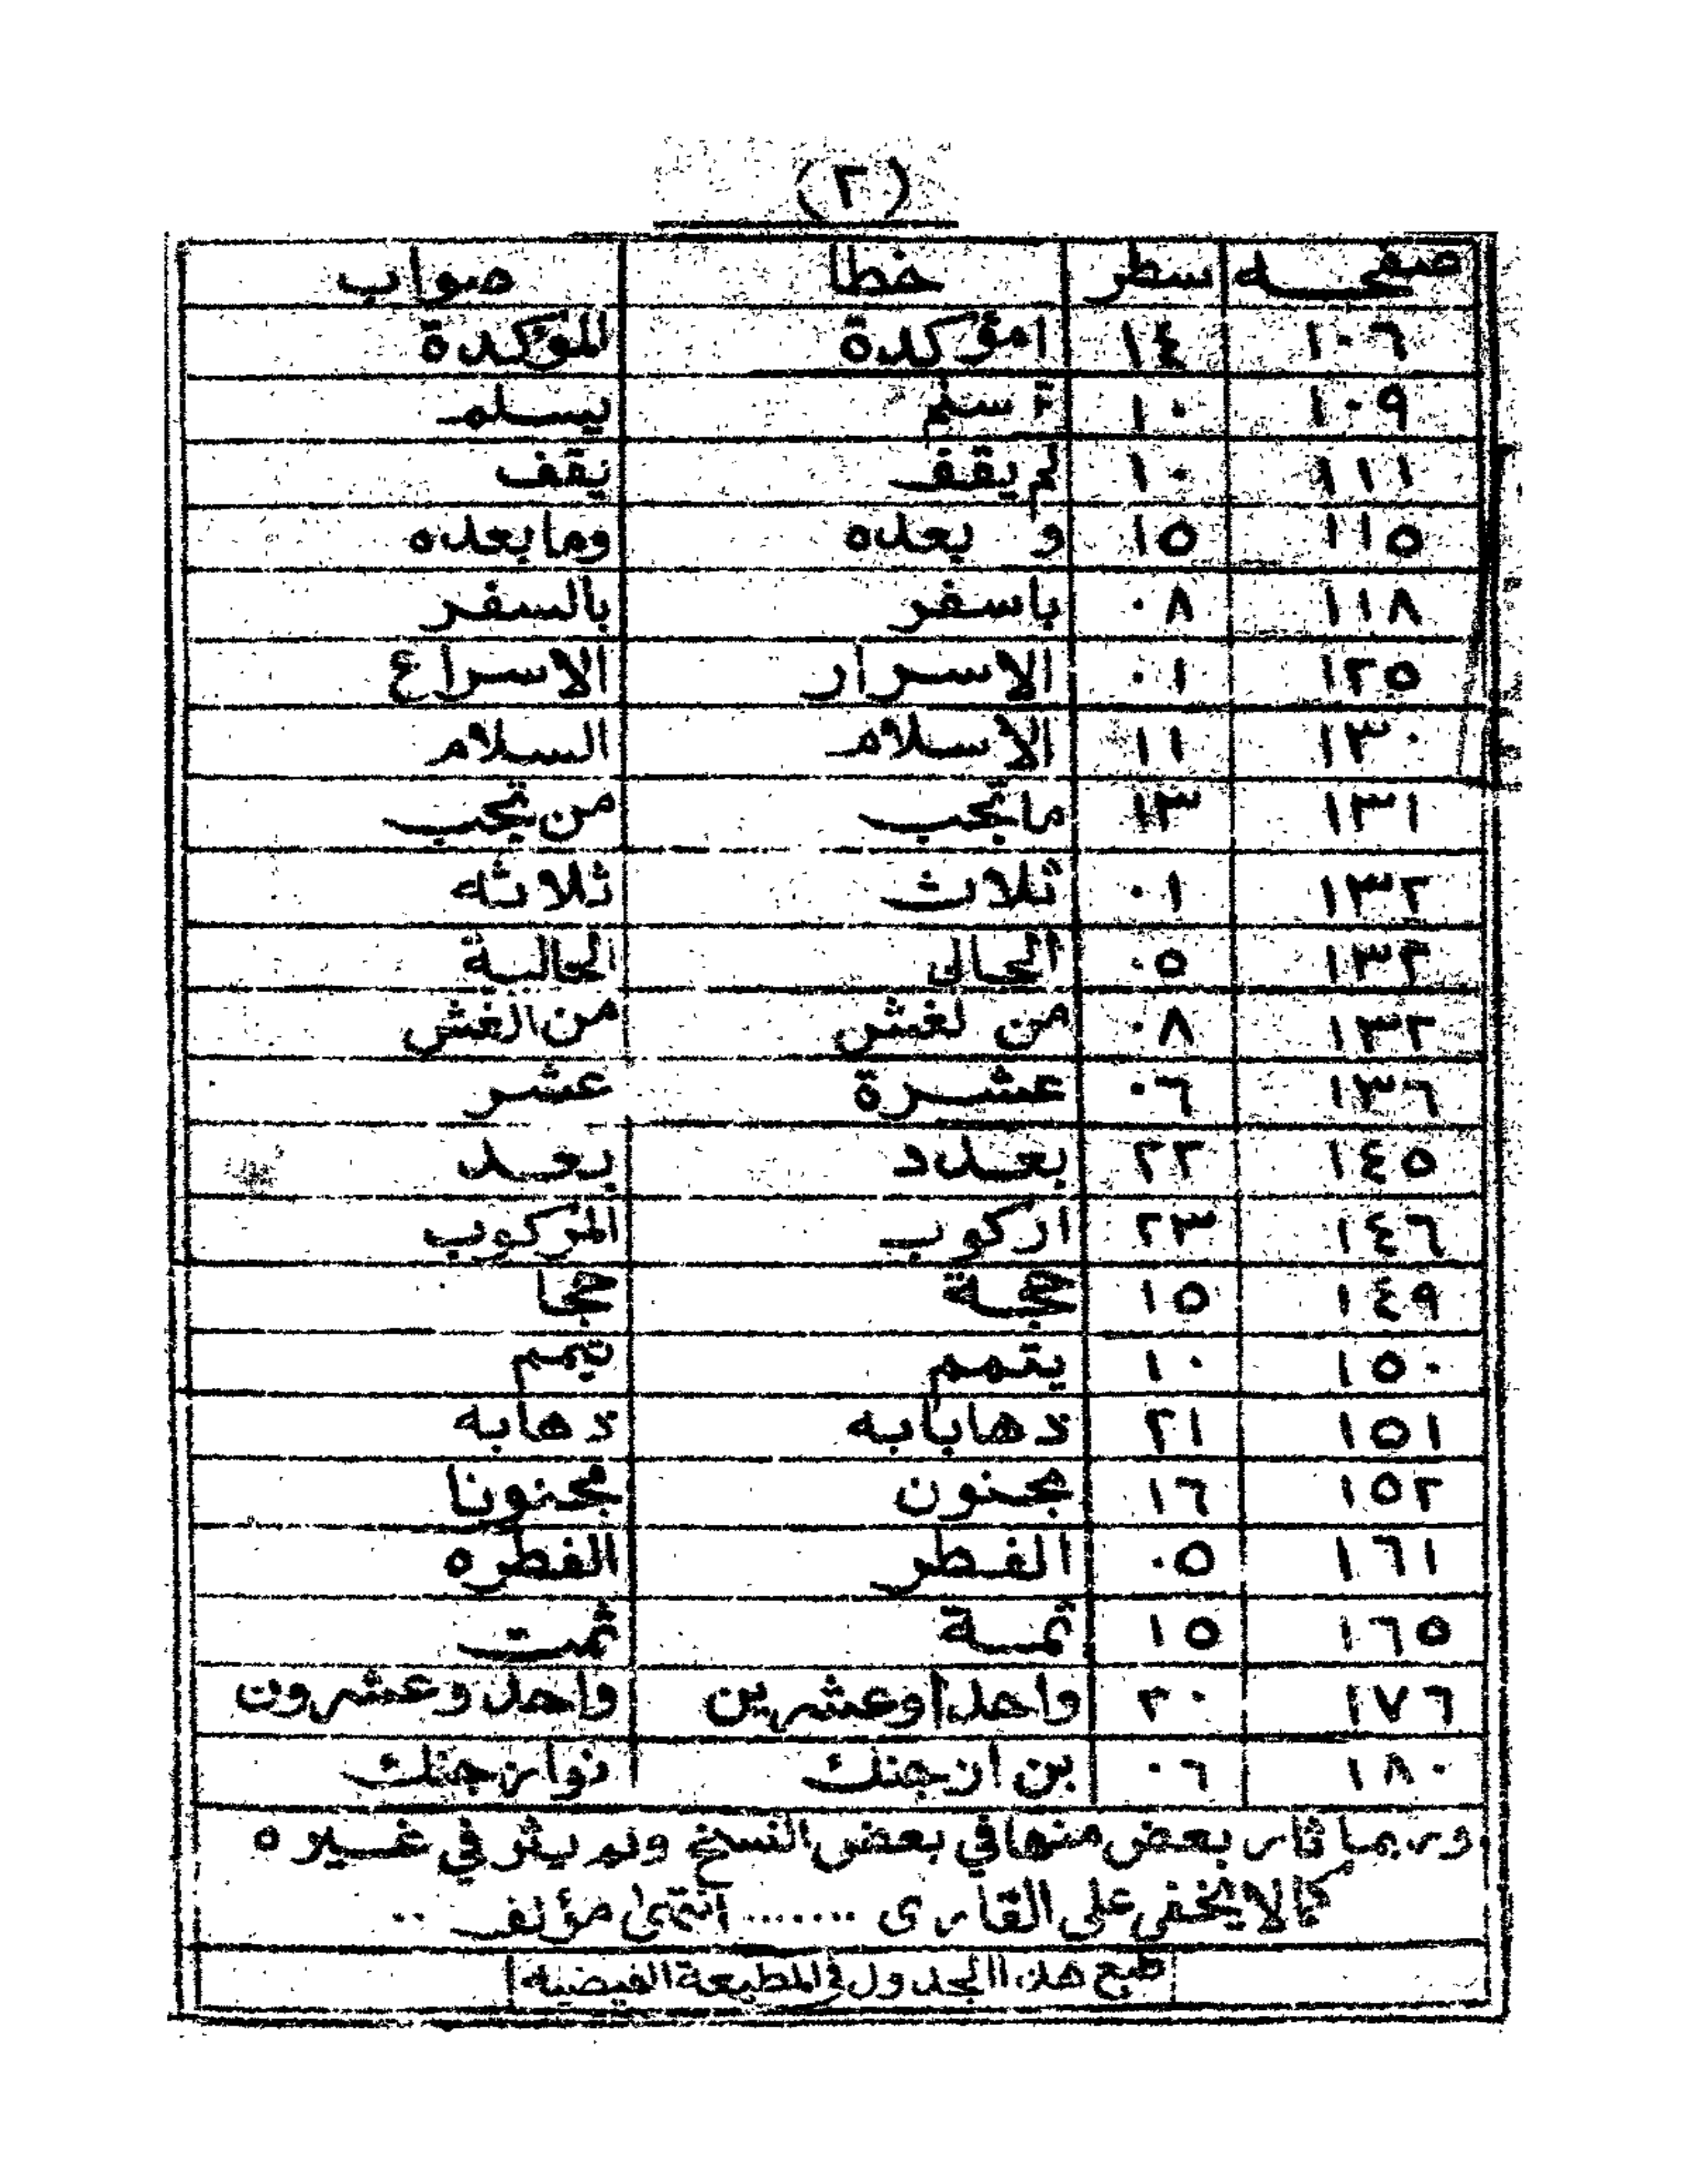 (٢)
صفحه سطر خطا صواب
١٠٦ ١٤ امؤكدة المؤكدة
١٠٩ ١٠ يسلم
١١١ ١٠ لم يقف يقف
١١٥ ١٥ و بعده وما بعده
١١٨ ٠٨ باسفر بالسفر
١٢٥ ٠١ الاسرار الاسراع
١٣٠ ١١ الاسلام السلام
١٣١ ١٣ ما تجب من تجب
١٣٢ ٠١ ثلاث ثلاثه
١٣٢ ٠٥ الحال الحالية
١٣٢ ٠٨ من لغش من الغش
١٣٦ ٠٦ عشرة عشر
١٤٥ ٢٢ بعدد بعد
١٤٦ ٢٣ اركوب المركوب
١٤٩ ١٥ حجة حجا
١٥٠ ١٠ يتمم تيمم
١٥١ ٢١ ذهابابه ذهابه
١٥٢ ١٦ مجنون مجنونا
١٦١ ٠٥ الفطر الفطره
١٦٥ ١٥ ثمة ثمت
١٧٦ ٢٠ واحدا وعشرين واحد وعشرون
١٨٠ ٠٦ بن ازجنك نوازجنك
وربما ثار بعض منها في بعض النسخ ولم يثر في غيره
كما لا يخفى على القارى ....... انتهى مؤلف ..
طبع هذا الجدول في المطبعة الفيضيه